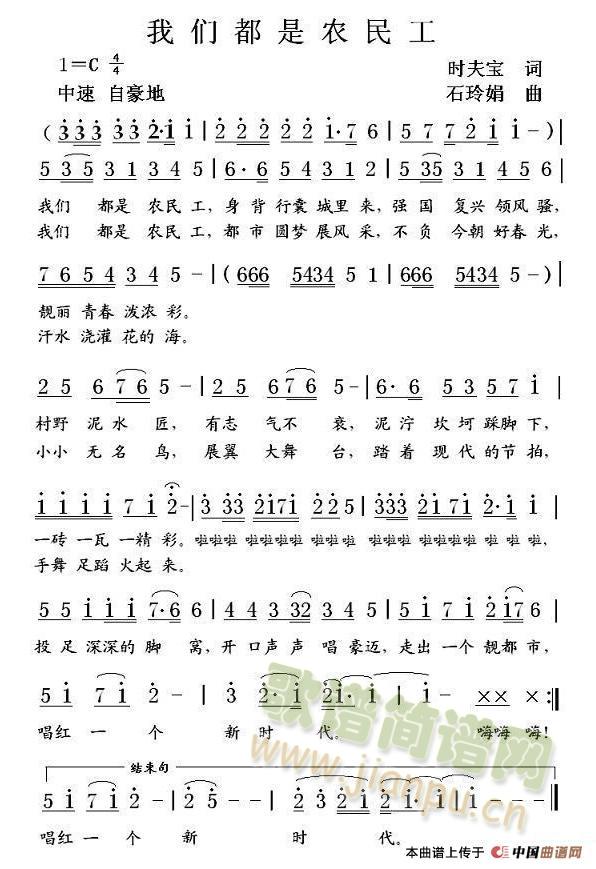 我们都是农民工
1=C 4/4
时夫宝 词
中速 自豪地
石玲娟 曲
(3 3 3 3 3 3 2·1 1 | 2 2 2 2 2 1·7 6 | 5 7 7 2 1 1 - )|
5 3 5 3 1 3 4 5 | 6· 6 5 4 3 1 2 | 5 35 3 1 3 4 5 6 |
我们 都是 农民 工,身 背 行囊 城里 来,强 国 复兴 领风 骚,
我们 都是 农民 工,都 市 圆梦 展风 采,不 负 今朝 好春 光,
7 6 5 4 3 4 5 - |(666 5434 5 1 | 666 5434 5 - )|
靓丽 青春 泼浓 彩。
汗水 浇灌 花的 海。
2 5 6 7 6 5 - | 2 5 5 6 7 6 5 - | 6· 6 5 3 5 7 1 |
村野 泥水 匠, 有志 气不 衰,泥泞 坎坷 踩脚 下,
小小 无名 鸟, 展翼 大舞 台,踏着 现代 的节 拍,
1 1 1 1 7 1 2 - | 3 33 2171 2 2 5 | 333 2171 2·1 1 |
一砖 一瓦 一精 彩。啦啦啦啦啦啦啦 啦啦啦 啦啦啦 啦啦啦啦 啦 啦 啦,
手舞 足蹈 火起 来。
5 5 1 1 1 7·6 | 4 4 3 32 3 4 5 | 7 7 2 2 5 176 |
投 足 深深的 脚 窝,开 口声 声 唱 豪迈,走出 一个 靓都 市,
5 1 7 1 2 - | 3 2· 1 21· 1 | 1 - ×× × :‖
唱红 一 个 新 时 代。 嗨嗨 嗨!
结束句
5 1 7 1 2 - | 2 5 - - | 2 3 2 21 2 1 | 1 - - - ‖
唱红 一 个 新 时 代。
歌谱简谱网
www.jianpu.cn
本曲谱上传于 中国曲谱网